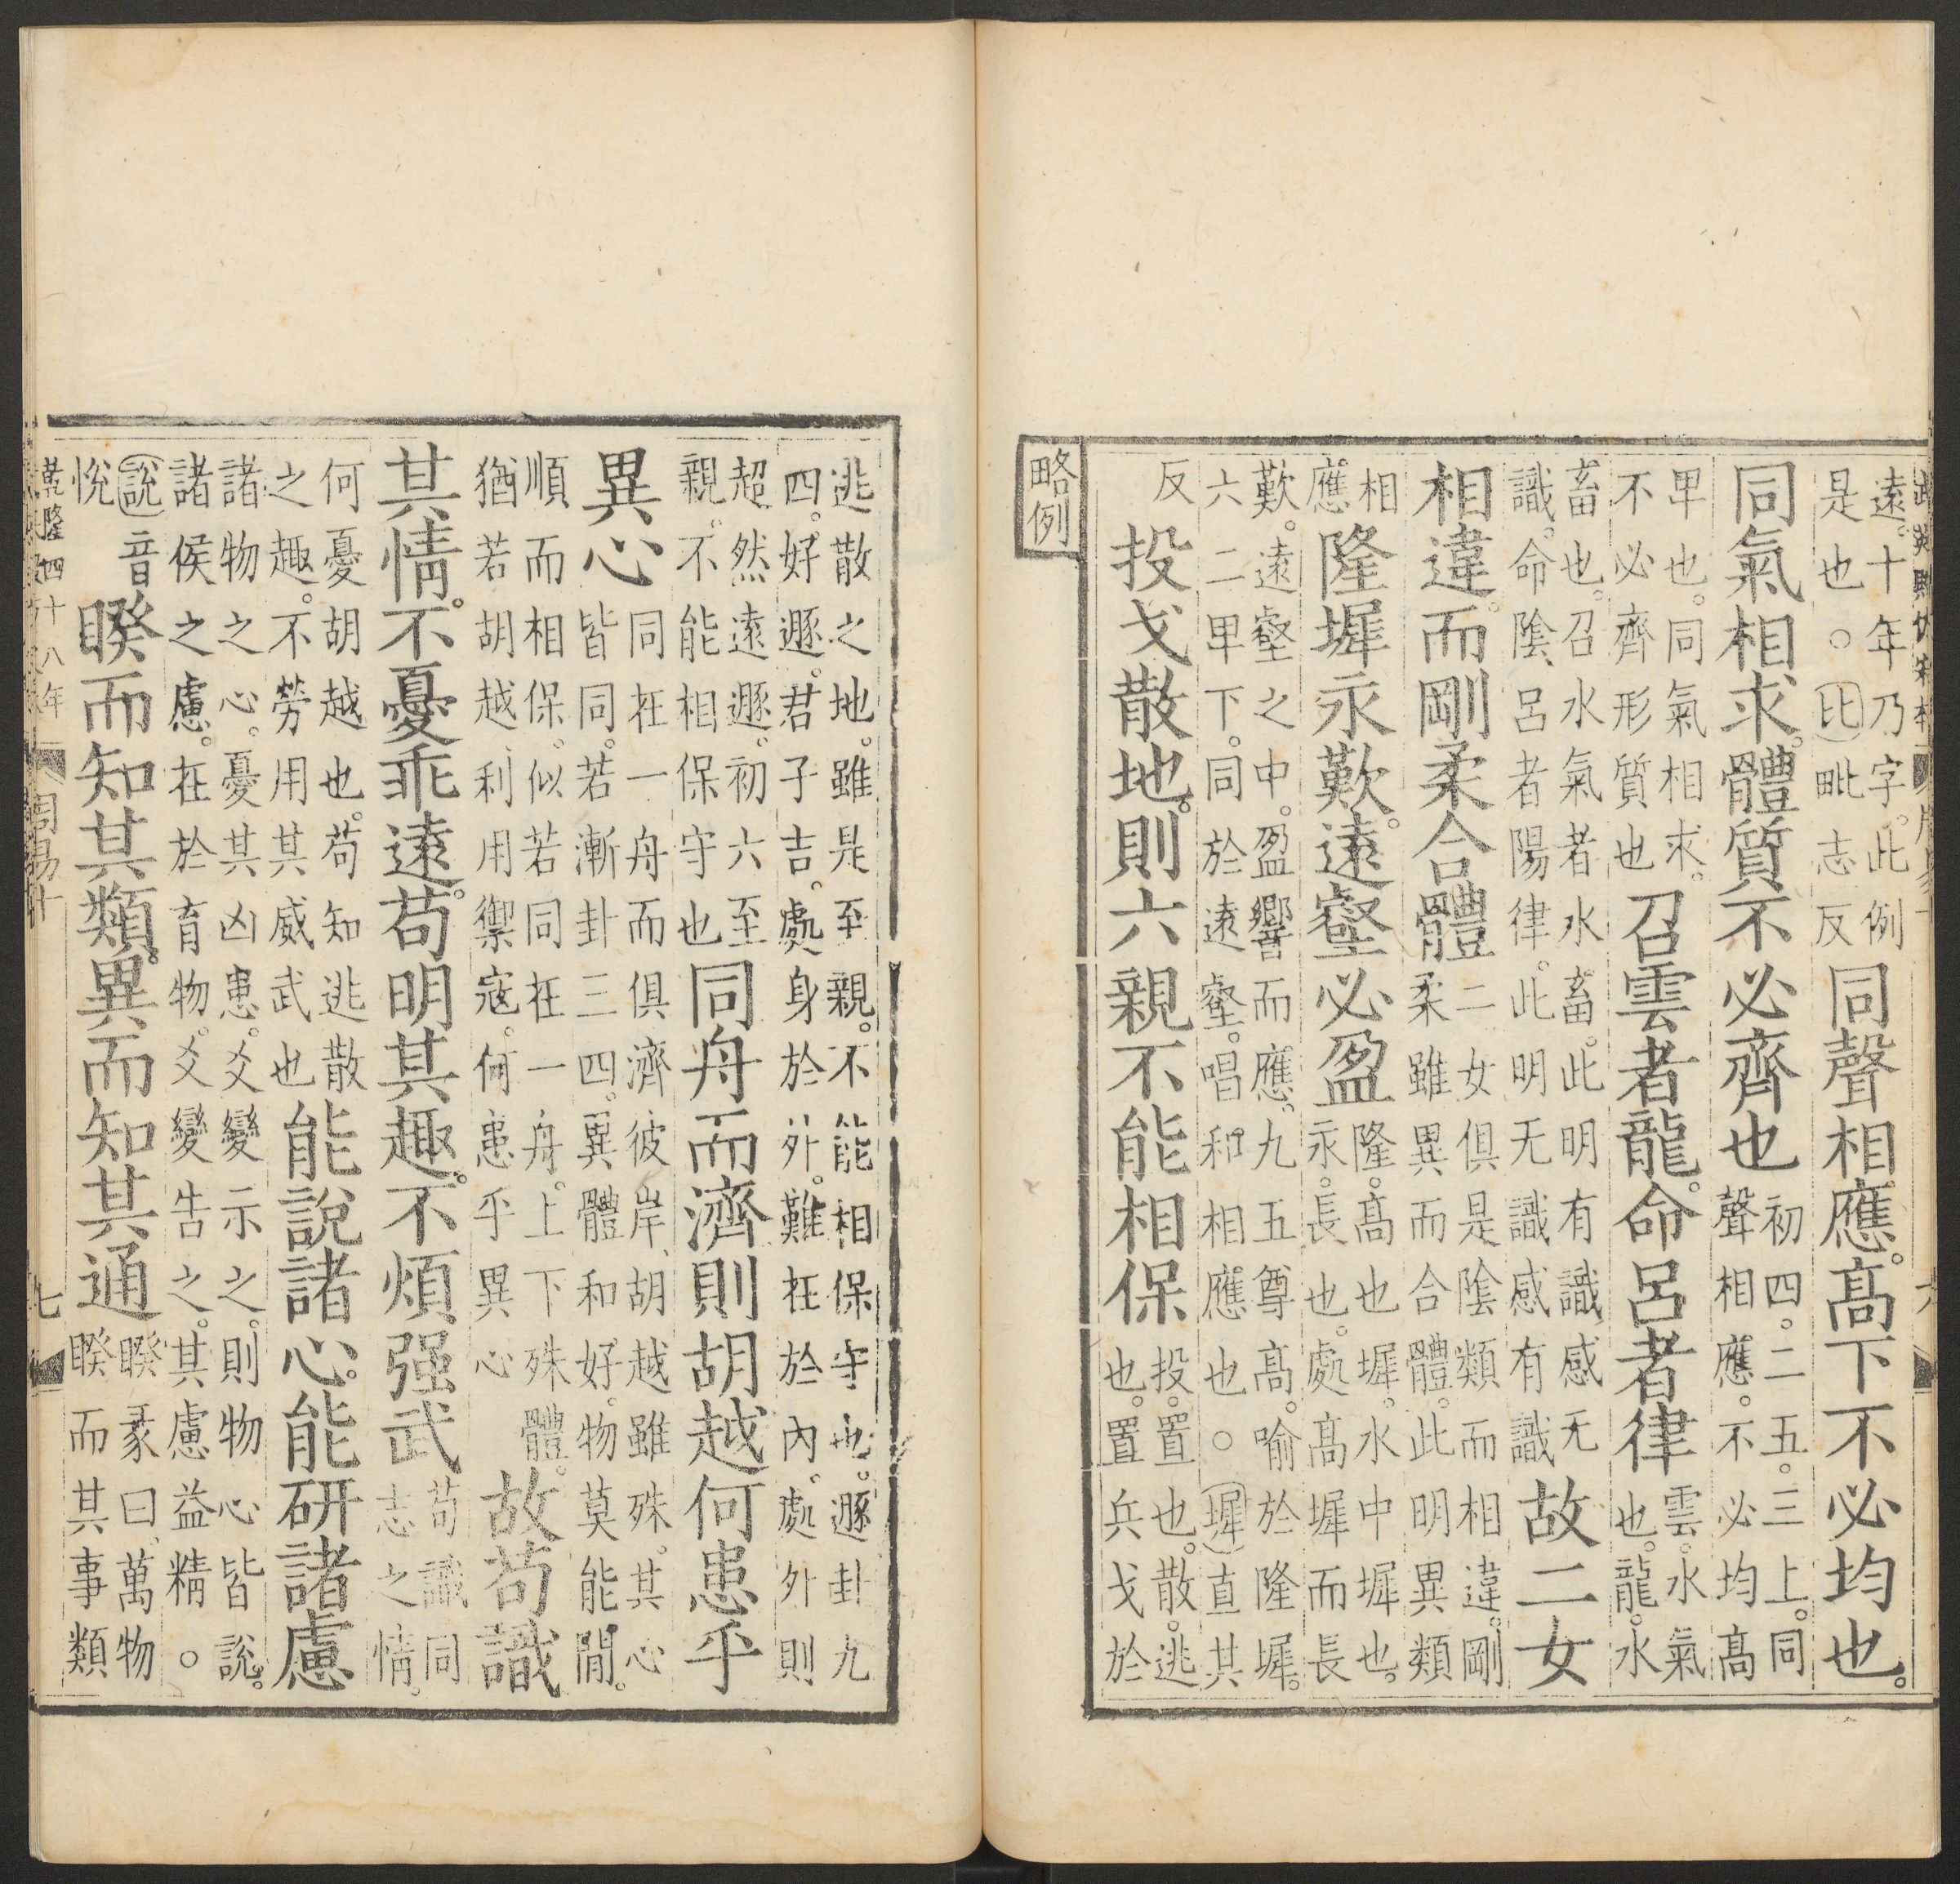 遠。十年乃字。此例
是也。○比毗志反
同聲相應。高下不必均也。
同氣相求。體質不必齊也
初四。二五。三上。同
聲相應。不必均高
卑也。同氣相求。
不必齊形質也
召雲者龍。命呂者律
雲。水氣
也。龍。水
畜也。召水氣者水畜。此明有識感无
識。命陰呂者陽律。此明无識感有識
故二女
相違而剛柔合體
二女俱是陰類而相違。剛
柔雖異而合體。此明異類
相
應。
隆墀永歎。遠壑必盈
隆。高也。墀。水中墀也。
永。長也。處高墀而長
歎。遠壑之中。盈響而應。九五尊高。喻於隆墀。
六二卑下。同於遠壑。唱和相應也。○墀直其
反
投戈散地。則六親不能相保
投。置也。散。逃
也。置兵戈於
略例
逃散之地。雖是至親。不能相保守也。遯卦九
四。好遯。君子吉。處身於外。難在於內。處外則
超然遠遯。初六至
親。不能相保守也
同舟而濟則胡越何患乎
異心
同在一舟而俱濟彼岸、胡越雖殊。其心
皆同。若漸卦三四。異體和好。物莫能閒。
順而相保。似若同在一舟。上下殊體。
猶若胡越、利用禦寇。何患乎異心
故苟識
其情。不憂乖遠。苟明其趣。不煩强武
苟識同
志之情。
何憂胡越也。苟知逃散
之趣。不勞用其威武也
能說諸心。能研諸慮
諸物之心。憂其凶患。爻變示之。則物心皆說。
諸侯之慮。在於育物。爻變告之。其慮益精。○
說音
悅
睽而知其類。異而知其通
睽彖曰。萬物
睽而其事類
乾隆四十八年
周易十
七